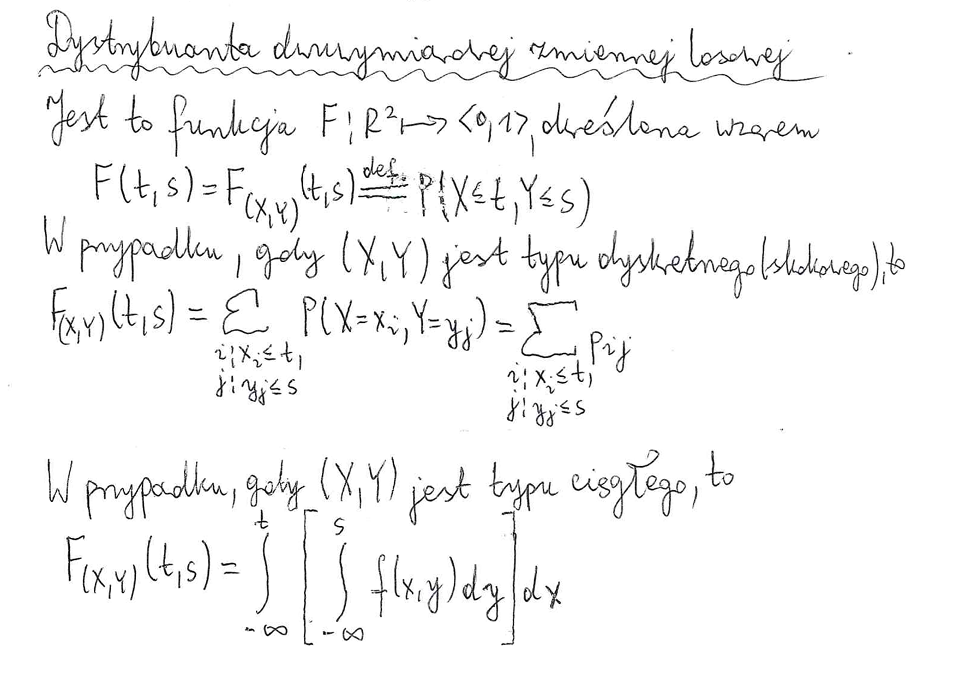 Dystrybuanta dwuwymiarowej zmiennej losowej
Jest to funkcja F: R² ↦ <0,1>, określona wzorem
F(t,s) = F_(X,Y)(t,s) def= P(X≤t, Y≤s)
W przypadku, gdy (X,Y) jest typu dyskretnego (skokowego), to
F_(X,Y)(t,s) = Σ P(X=x_i, Y=y_j) = Σ p_ij
i: x_i≤t, i: x_i≤t,
j: y_j≤s j: y_j≤s
W przypadku, gdy (X,Y) jest typu ciągłego, to
F_(X,Y)(t,s) = ∫_{-∞}^{t} [ ∫_{-∞}^{s} f(x,y) dy ] dx